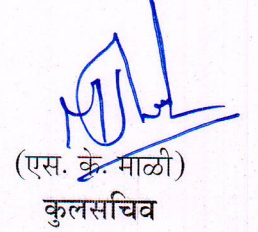 (एस. के. माळी)
कुलसचिव